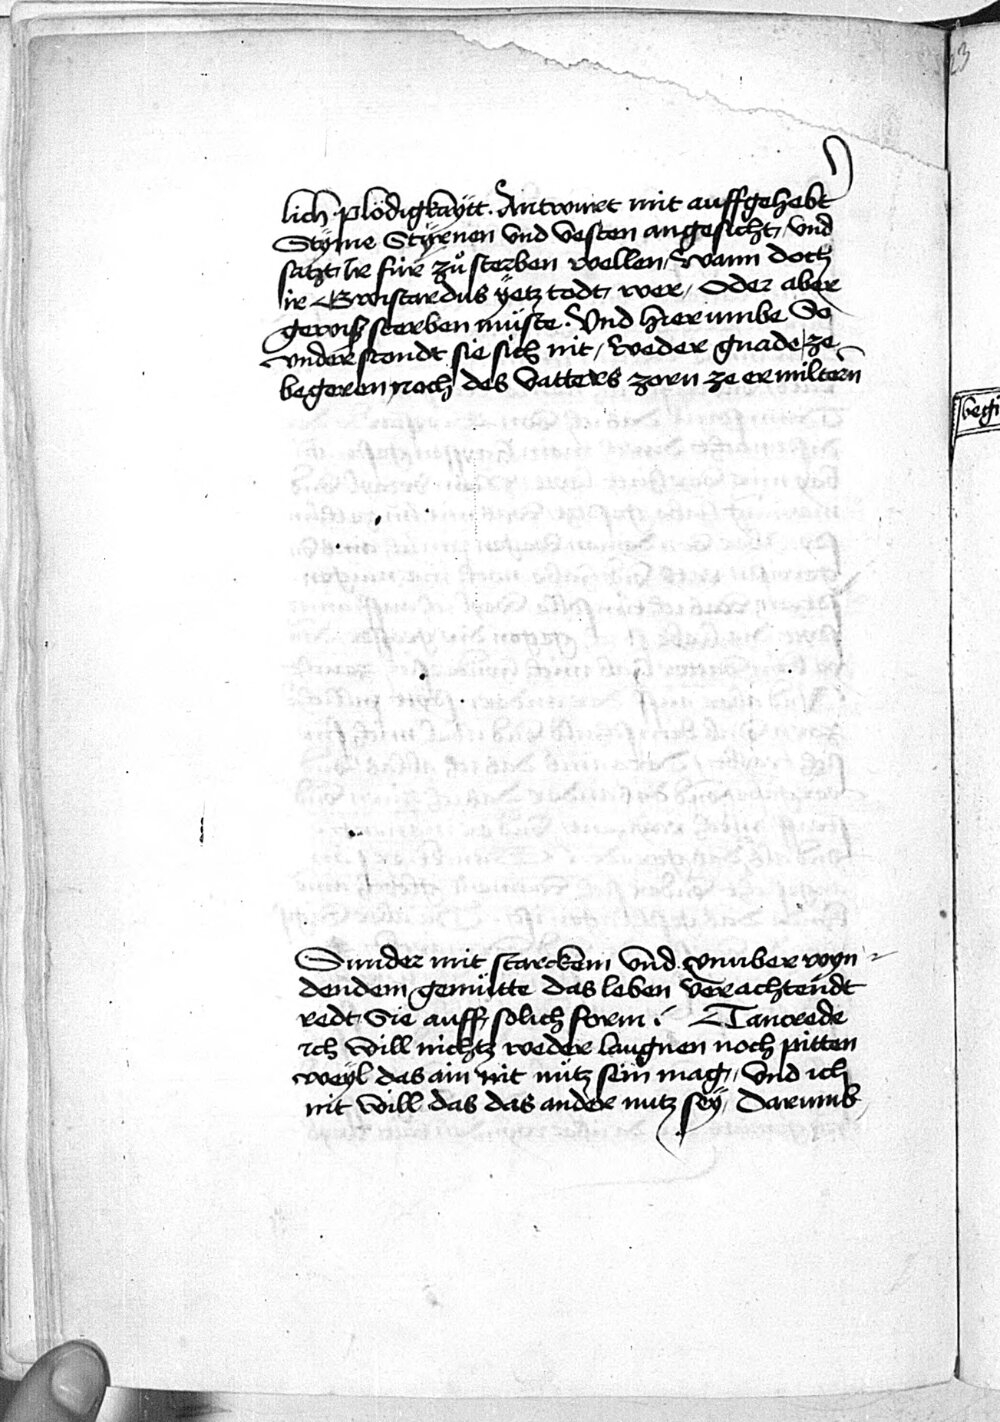 lich plödigkaÿtt. Antwurt mit auffgehebt
Stÿme Stÿrnen vnd vesten angesicht, vnd
satzt, Ir für zůsterben wellen, wann doch
ir Gwistardus ÿetz todt, wer, Oder aber
gewiß sterben müste. Vnd hierumbe So
vnderstondt sie sich nit, weder gnade ze
begeren noch des vatters zorn ze ermiltern
Sunder mit starckem vnd vnuberwyn
dendem gemütte das leben verachtendt
redt, Sie auff, solich form / Tancrede
ich will nichtz weder laugnen noch pitten
weÿl das ain nit nütz sein mag, vnd ich
nit will das das ander nutz seÿ, Darumb
23